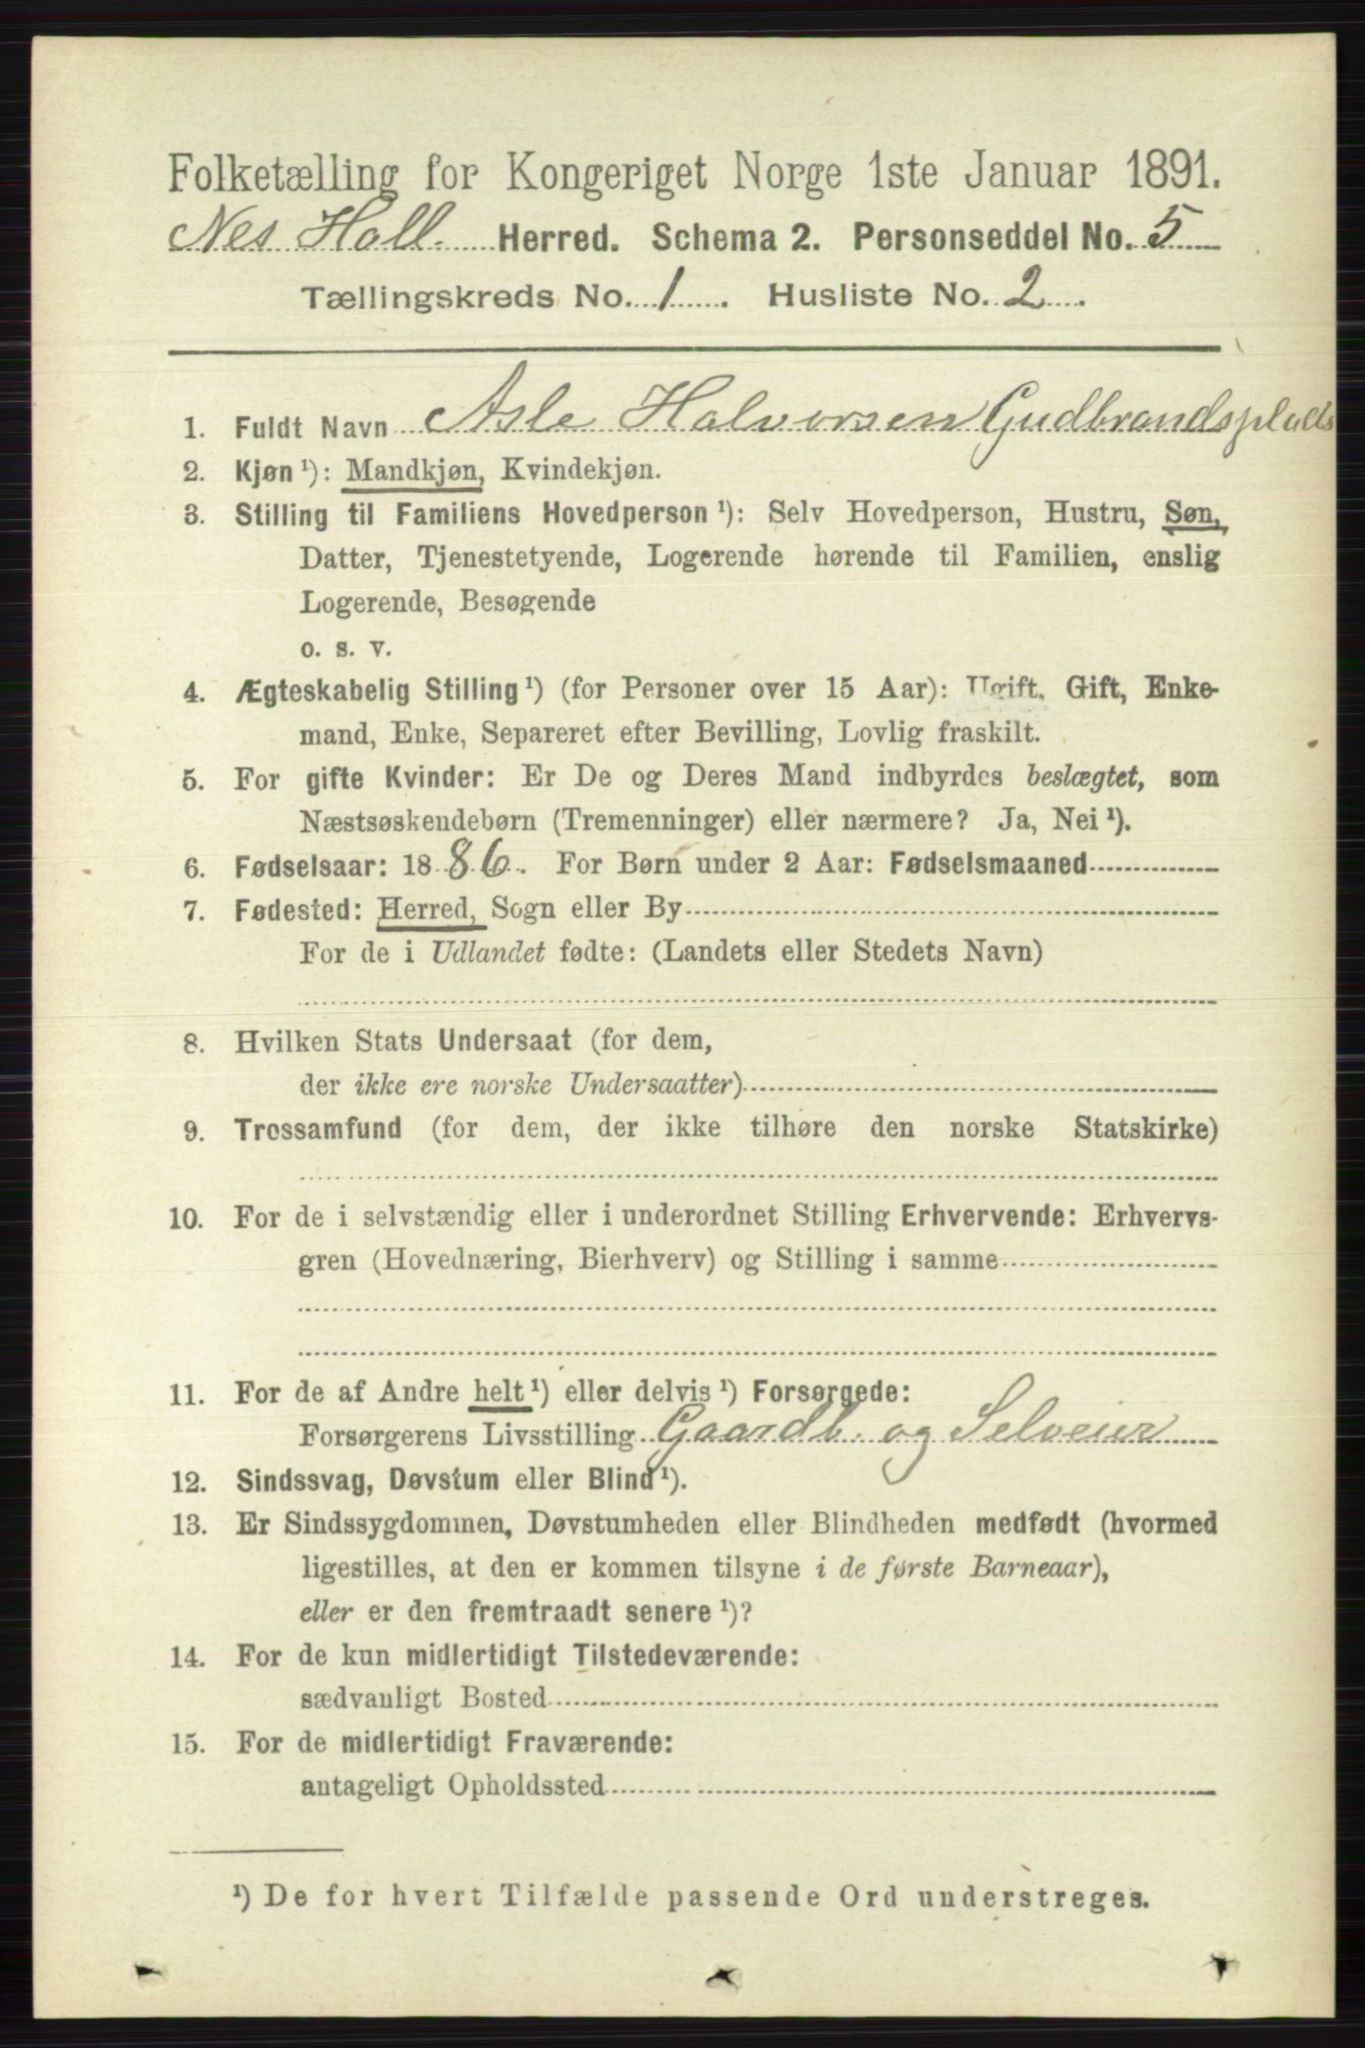 Folketælling for Kongeriget Norge 1ste Januar 1891.
Nes Hall. Herred. Schema 2. Personseddel No. 5
Tællingskreds No. 1. Husliste No. 2.
1. Fuldt Navn Asle Halvorsen Gudbrandsplads
2. Kjøn ¹): Mandkjøn, Kvindekjøn.
3. Stilling til Familiens Hovedperson ¹): Selv Hovedperson, Hustru, Søn,
Datter, Tjenestetyende, Logerende hørende til Familien, enslig
Logerende, Besøgende
o. s. v.
4. Ægteskabelig Stilling ¹) (for Personer over 15 Aar): Ugift, Gift, Enke-
mand, Enke, Separeret efter Bevilling, Lovlig fraskilt.
5. For gifte Kvinder: Er De og Deres Mand indbyrdes beslægtet, som
Næstsøskendebørn (Tremenninger) eller nærmere? Ja, Nei ¹).
6. Fødselsaar: 1886. For Børn under 2 Aar: Fødselsmaaned
7. Fødested: Herred, Sogn eller By
For de i Udlandet fødte: (Landets eller Stedets Navn)
8. Hvilken Stats Undersaat (for dem,
der ikke ere norske Undersaatter)
9. Trossamfund (for dem, der ikke tilhøre den norske Statskirke)
10. For de i selvstændig eller i underordnet Stilling Erhvervende: Erhvervs-
gren (Hovednæring, Bierhverv) og Stilling i samme
11. For de af Andre helt ¹) eller delvis ¹) Forsørgede:
Forsørgerens Livsstilling Gaardb. og Selveier
12. Sindssvag, Døvstum eller Blind ¹).
13. Er Sindssygdommen, Døvstumheden eller Blindheden medfødt (hvormed
ligestilles, at den er kommen tilsyne i de første Barneaar),
eller er den fremtraadt senere ¹)?
14. For de kun midlertidigt Tilstedeværende:
sædvanligt Bosted
15. For de midlertidigt Fraværende:
antageligt Opholdssted
¹) De for hvert Tilfælde passende Ord understreges.